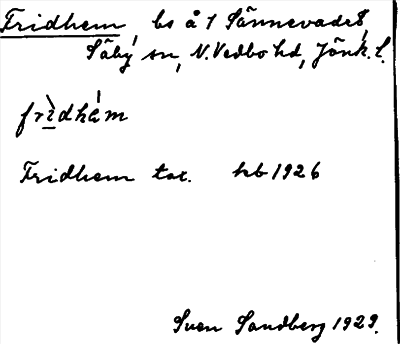 Fridhem, bs å 1 Sånnevadet,
Säby sn, N. Vedbo hd, Jönk. l.
frìdhä́m
Fridhem tax. hb 1926
Sven Sandberg 1929.